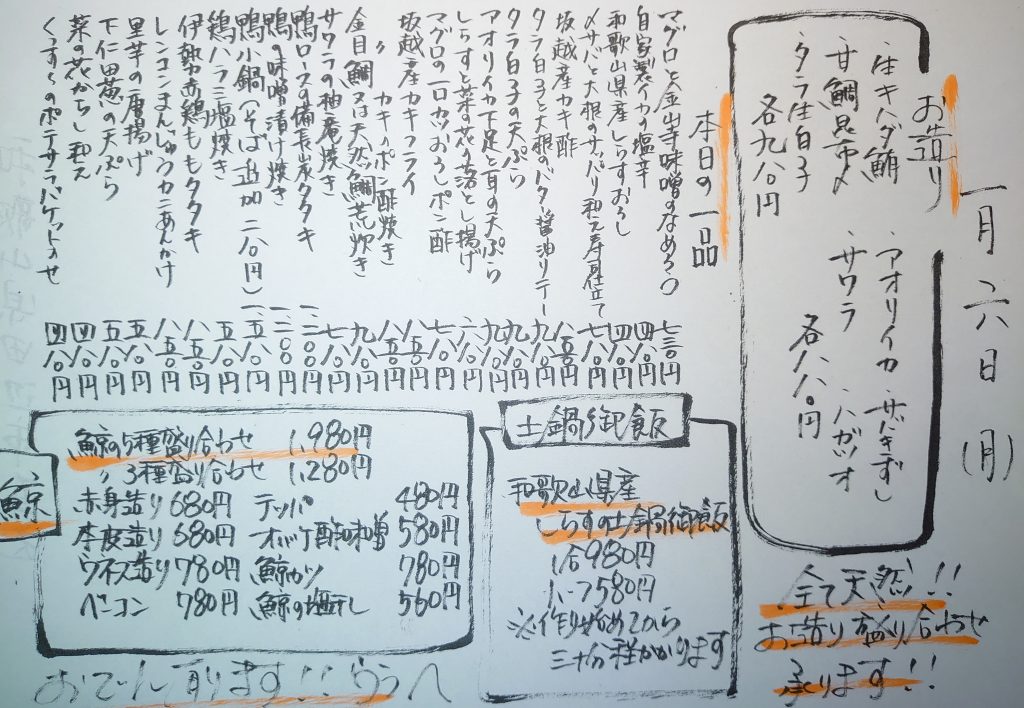 一月六日(月)
お造り
・生キハダ鮪
・甘鯛昆布〆
・タラ生白子
各九八〇円
・アオリイカ
・きずし
・サワラ
・ハガツオ
各八八〇円
全て天然!!
お造り盛り合わせ
承ります!!
本日の一品
マグロと金山寺味噌のなめろう 七三〇円
自家製イカの塩辛 四八〇円
和歌山県産しらすおろし 四八〇円
〆サバと大根のサッパリ和え寿司仕立て 七八〇円
坂越産カキ酢 八五〇円
タラ白子と大根のバター醤油ソテー 九八〇円
タラ白子の天ぷら 九八〇円
アオリイカ下足と耳の天ぷら 九八〇円
しらすと菜の花の落とし揚げ 六八〇円
マグロの一口カツおろしポン酢 七八〇円
坂越産カキフライ 九八〇円
〃 カキのポン酢焼き 八五〇円
金目鯛又は天然鯛荒炊き 九八〇円
サワラの柚庵焼き 七八〇円
鴨ロースの備長炭タタキ 一、二〇〇円
鴨の味噌漬け焼き 一、二〇〇円
鴨小鍋(そば追加二八〇円) 一、五八〇円
鶏ハラミ塩焼き 五八〇円
伊勢赤鶏ももタタキ 八五〇円
レンコンまんじゅうカニあんかけ 八八〇円
里芋の唐揚げ 五五〇円
下仁田葱の天ぷら 五八〇円
菜の花からし和え 四八〇円
くずくのポテサラバケットのせ 四八〇円
土鍋御飯
和歌山県産
しらすの土鍋御飯
1合980円
ハーフ580円
※作り始めてから
三十分程かかります
鯨
鯨の5種盛り合わせ 1,980円
〃3種盛り合わせ 1,280円
赤身造り 680円 テッパ 480円
本皮造り 680円 オバケ酢味噌 580円
ウネス造り 780円 鯨カツ 780円
ベーコン 780円 鯨の塩干し 560円
おでん有ります!!ウラへ